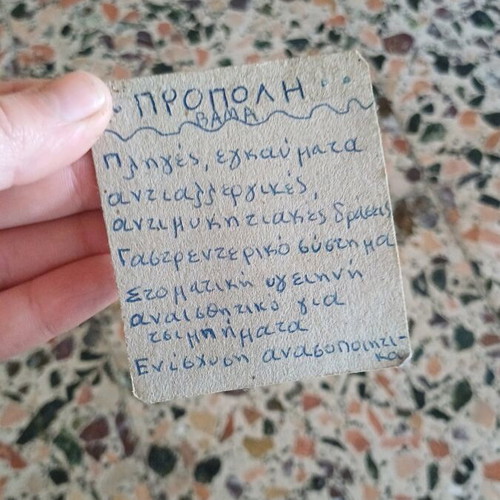 ΠΡΟΠΟΛΗ
ΒΑΔΑ
Πληγές, εγκαύματα
αντιαλλεργικές,
αντιμυκητιακές δράσεις
Γαστρεντερικό σύστημα
Στοματική υγειηνή
αναισθητικό για
τσιμπήματα
Ενίσχυση ανασοποιητι-
κο